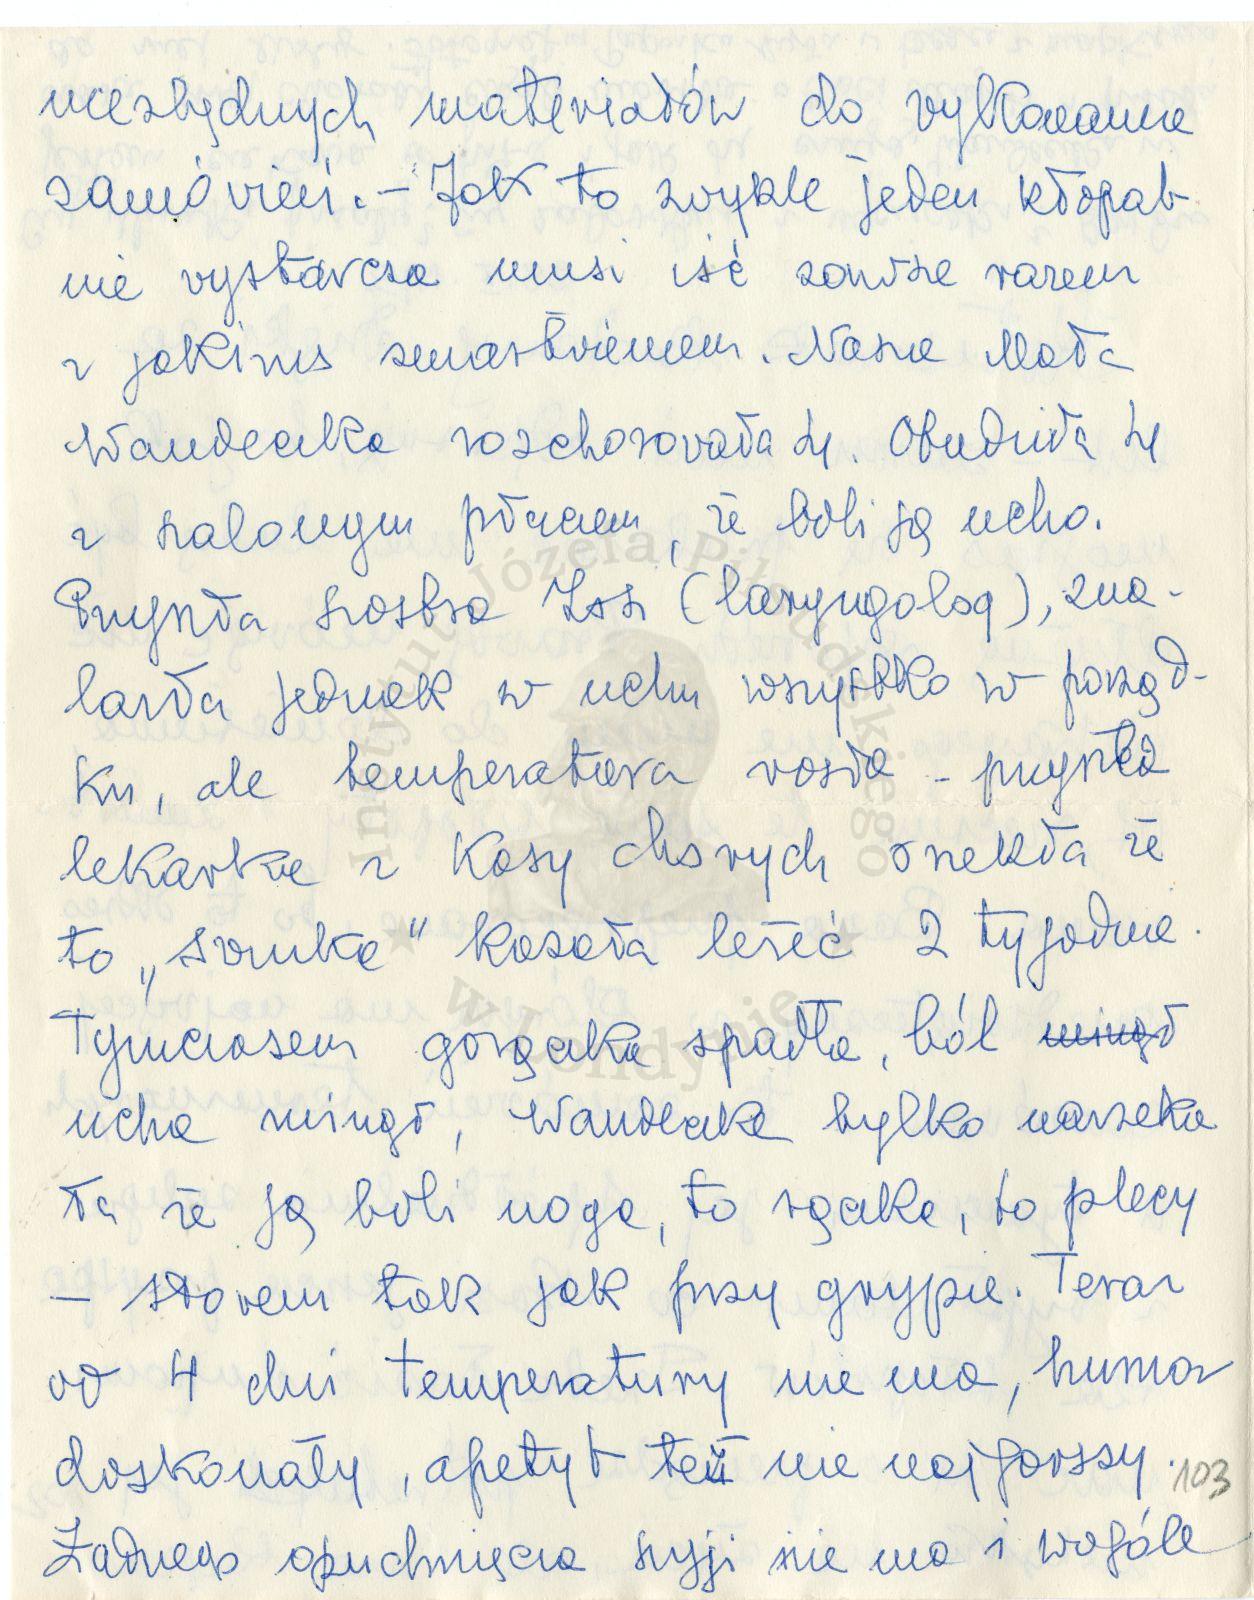 niezbędnych materiałów do wykonania
zamówień. – Jak to zwykle jeden kłopot
nie wystarcza musi iść zawsze razem
z jakimś zmartwieniem. Nasza Mała
Wandeczka rozchorowała się. Obudziła się
z szalonym płaczem, że boli ją ucho.
Przyszła siostra Issi (laryngolog), zna-
lazła jednak w uchu wszystko w porząd-
ku, ale temperatura rosła – przyszła
lekarka z Kasy chorych orzekła że
to „świnka" kazała leżeć 2 tygodnie.
Tymczasem gorączka spadła, ból minął
ucha minął, Wandeczka tylko narzeka
ła że ją boli noga, to rączka, to plecy
– słowem tak jak przy grypie. Teraz
od 4 dni temperatury nie ma, humor
doskonały, apetyt też nie najgorszy.
103
Żadnego opuchnięcia szyji nie ma i wogóle
Instytut Józefa Piłsudskiego
w Londynie